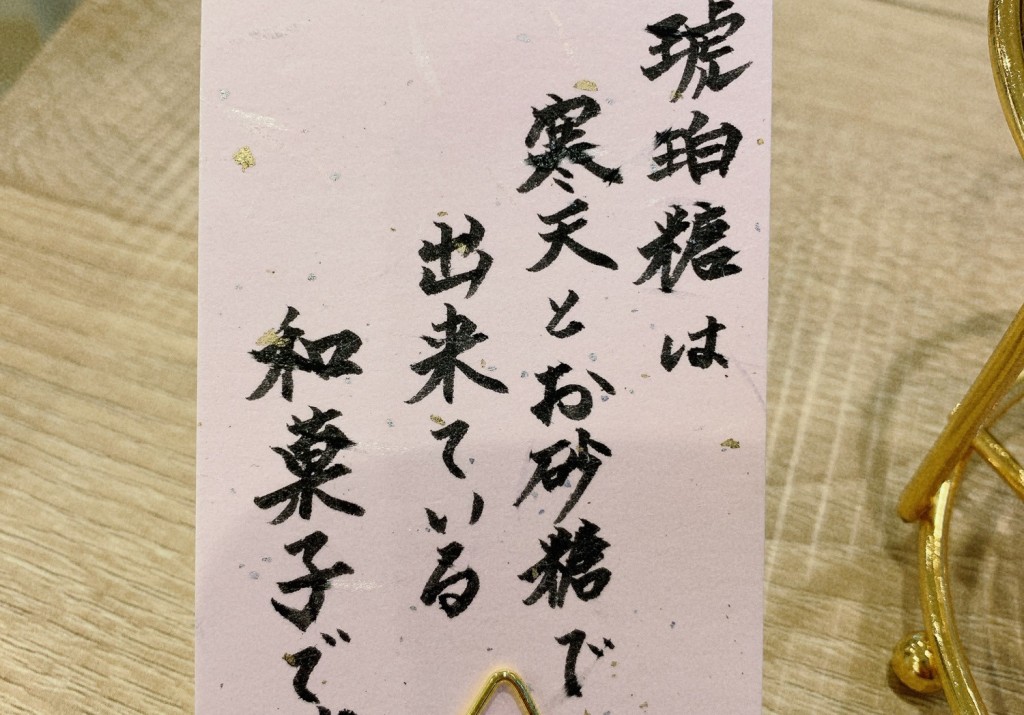 琥珀糖は
寒天とお砂糖で
出来ている
和菓子で